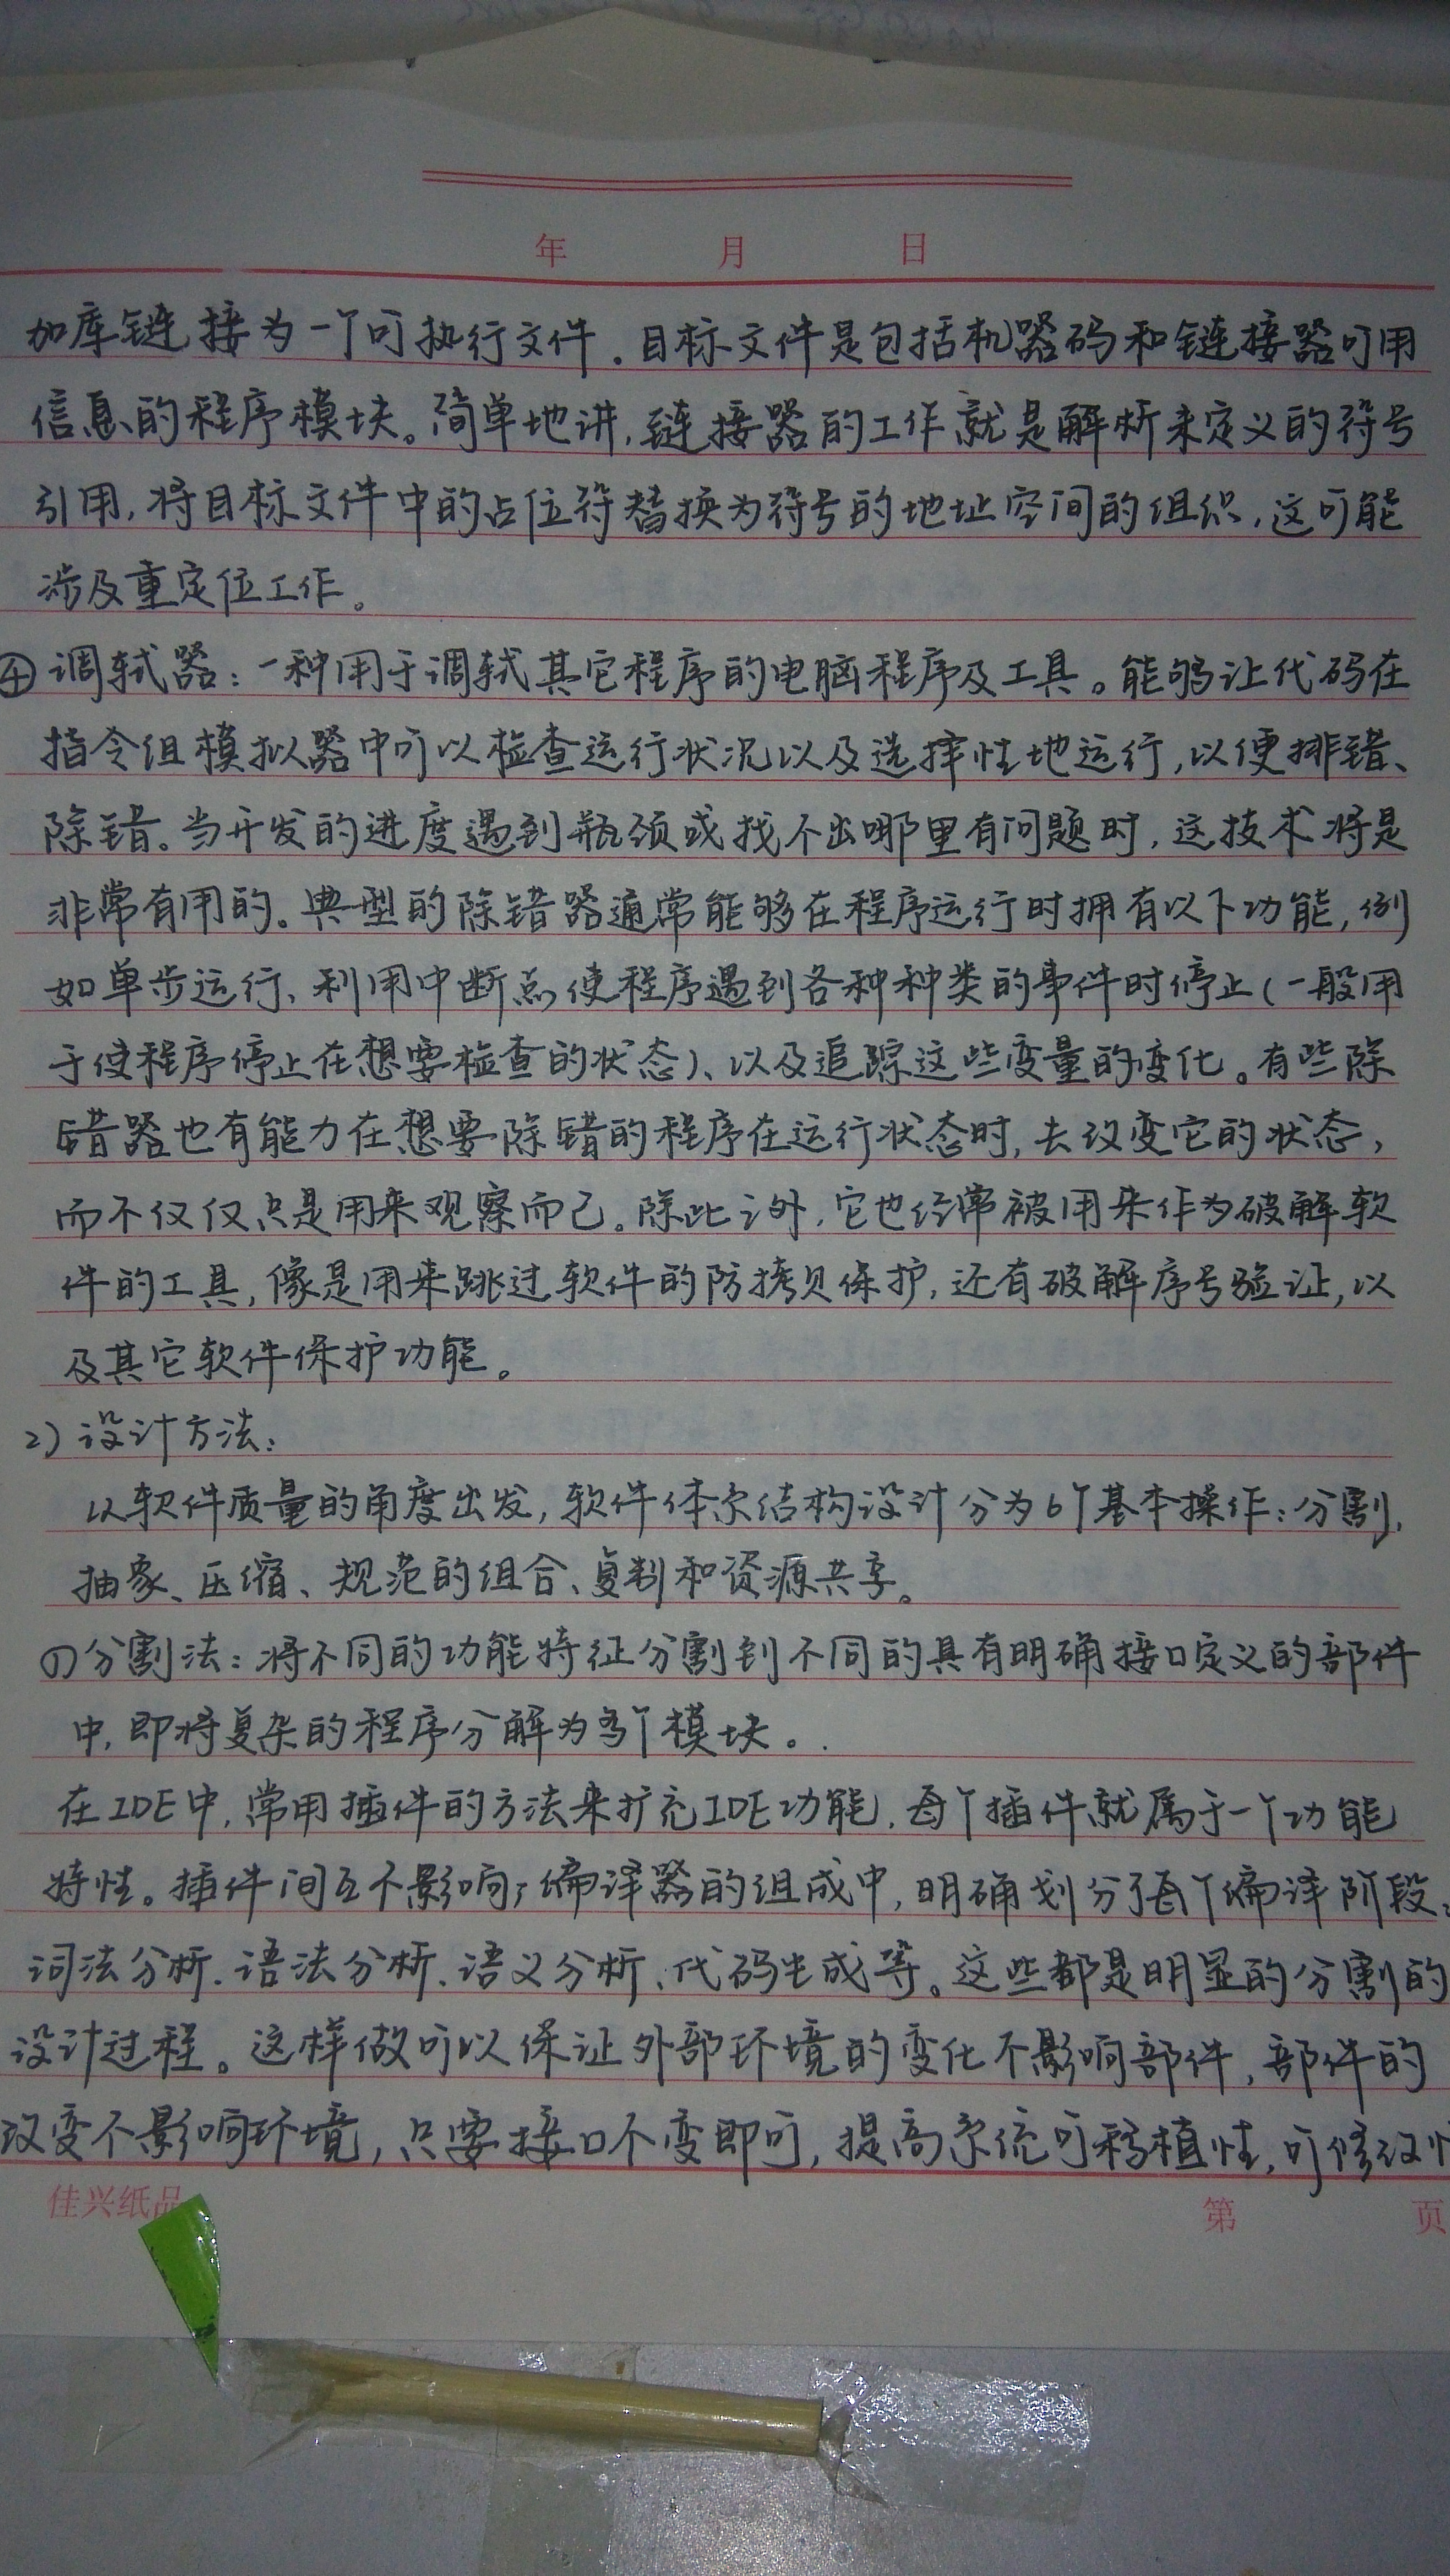 年 月 日
加库链接为一个可执行文件。目标文件是包括机器码和链接器可用
信息的程序模块。简单地讲,链接器的工作就是解析未定义的符号
引用,将目标文件中的占位符替换为符号的地址空间的组织,这可能
涉及重定位工作。
④调轼器:一种用于调轼其它程序的电脑程序及工具。能够让代码在
指令组模拟器中可以检查运行状况以及选择性地运行,以便排错、
除错。当开发的进度遇到瓶颈或找不出哪里有问题时,这技术将是
非常有用的。典型的除错器通常能够在程序运行时拥有以下功能,例
如单步运行、利用中断点使程序遇到各种种类的事件时停止(一般用
于使程序停止在想要检查的状态)、以及追踪这些变量的变化。有些除
错器也有能力在想要除错的程序在运行状态时,去改变它的状态,
而不仅仅只是用来观察而已。除此之外,它也经常被用来作为破解软
件的工具,像是用来跳过软件的防拷贝保护,还有破解序号验证,以
及其它软件保护功能。
2)设计方法:
以软件质量的角度出发,软件体系结构设计分为6个基本操作:分割、
抽象、压缩、规范的组合、复制和资源共享。
(1)分割法:将不同的功能特征分割到不同的具有明确接口定义的部件
中,即将复杂的程序分解为多个模块。
在IDE中,常用插件的方法来扩充IDE功能,每个插件就属于一个功能
特性。插件间互不影响;编译器的组成中,明确划分了每个编译阶段:
词法分析、语法分析、语义分析、代码生成等。这些都是明显的分割的
设计过程。这样做可以保证外部环境的变化不影响部件,部件的
改变不影响环境,只要接口不变即可,提高系统可移植性,可修改性
佳兴纸品
第 页